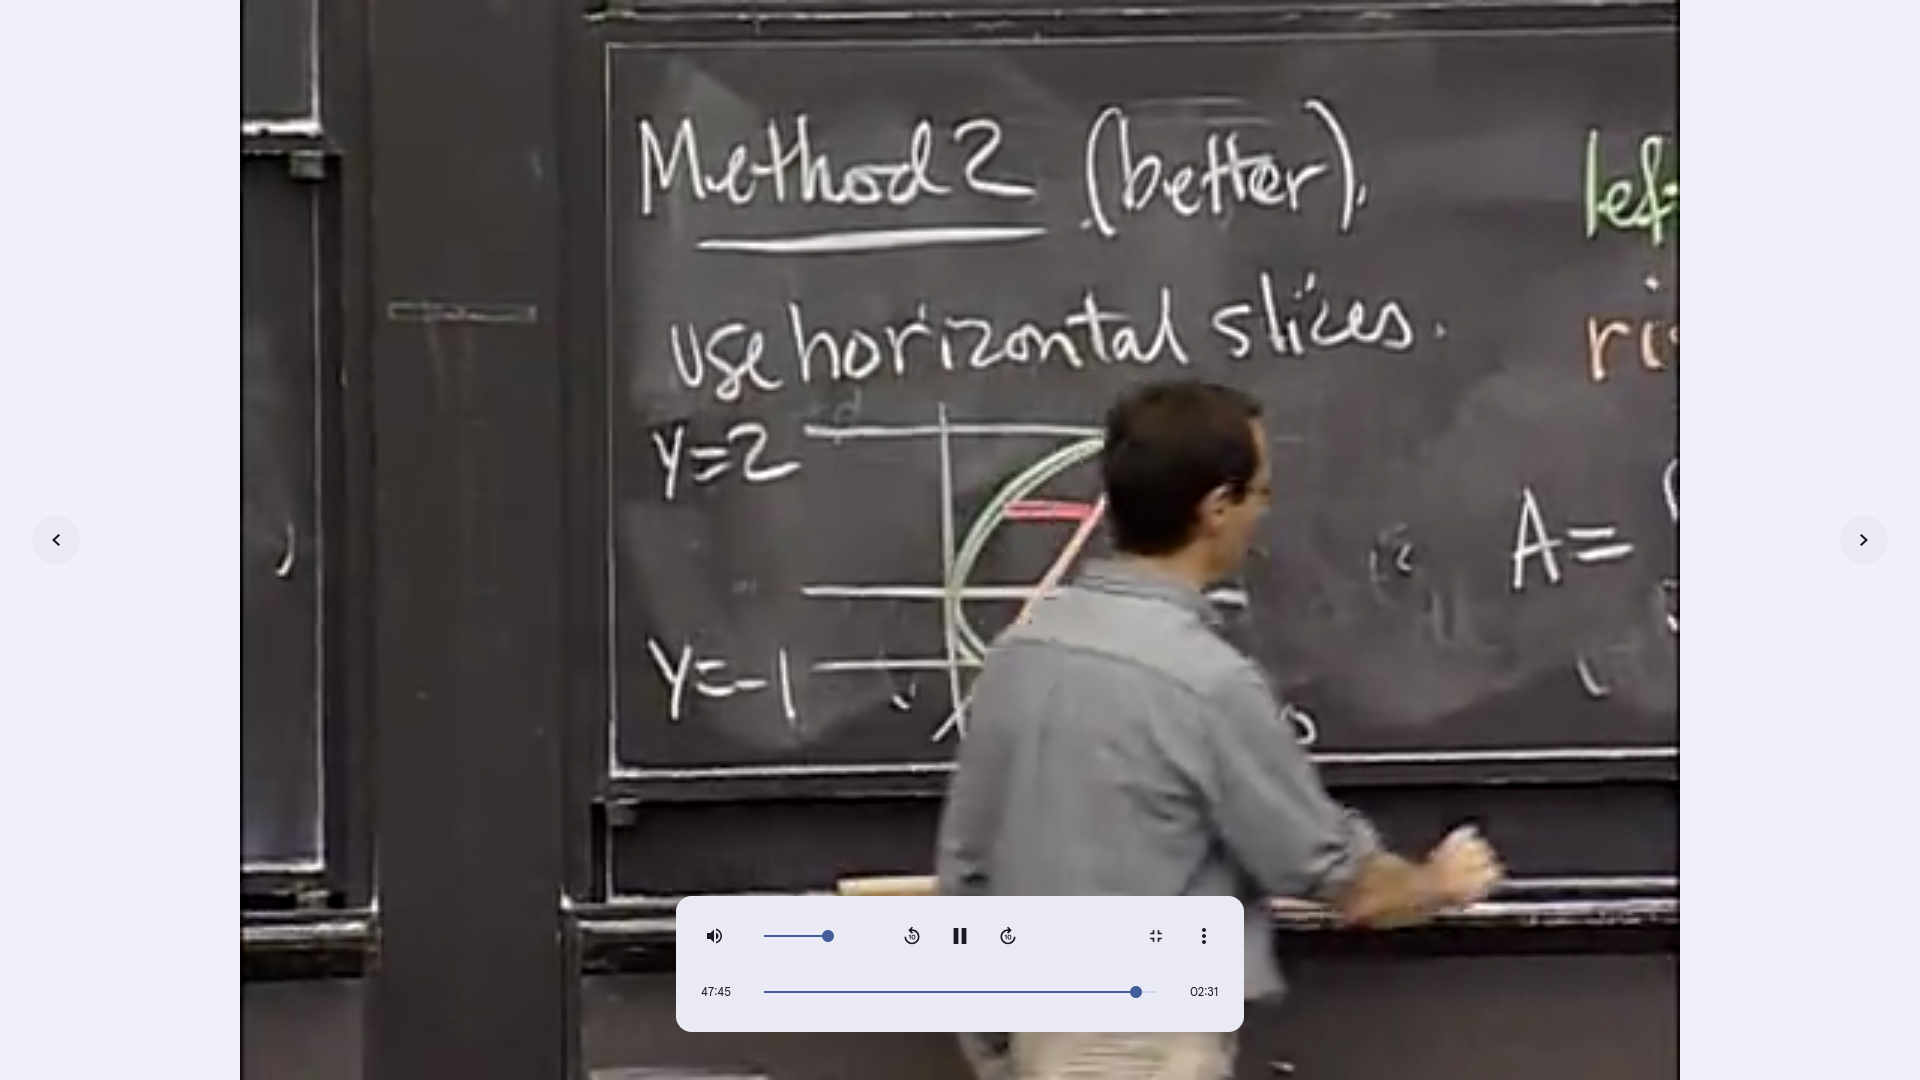 Method 2 (better).
use horizontal slices.
y=2
y=-1
lef
ri
A=
47:45
02:31